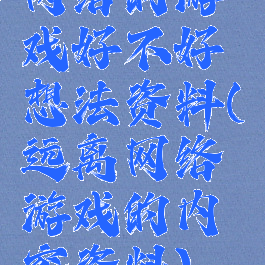 网络的游
戏好不好
想法资料(
远离网络
游戏的内
容资料)